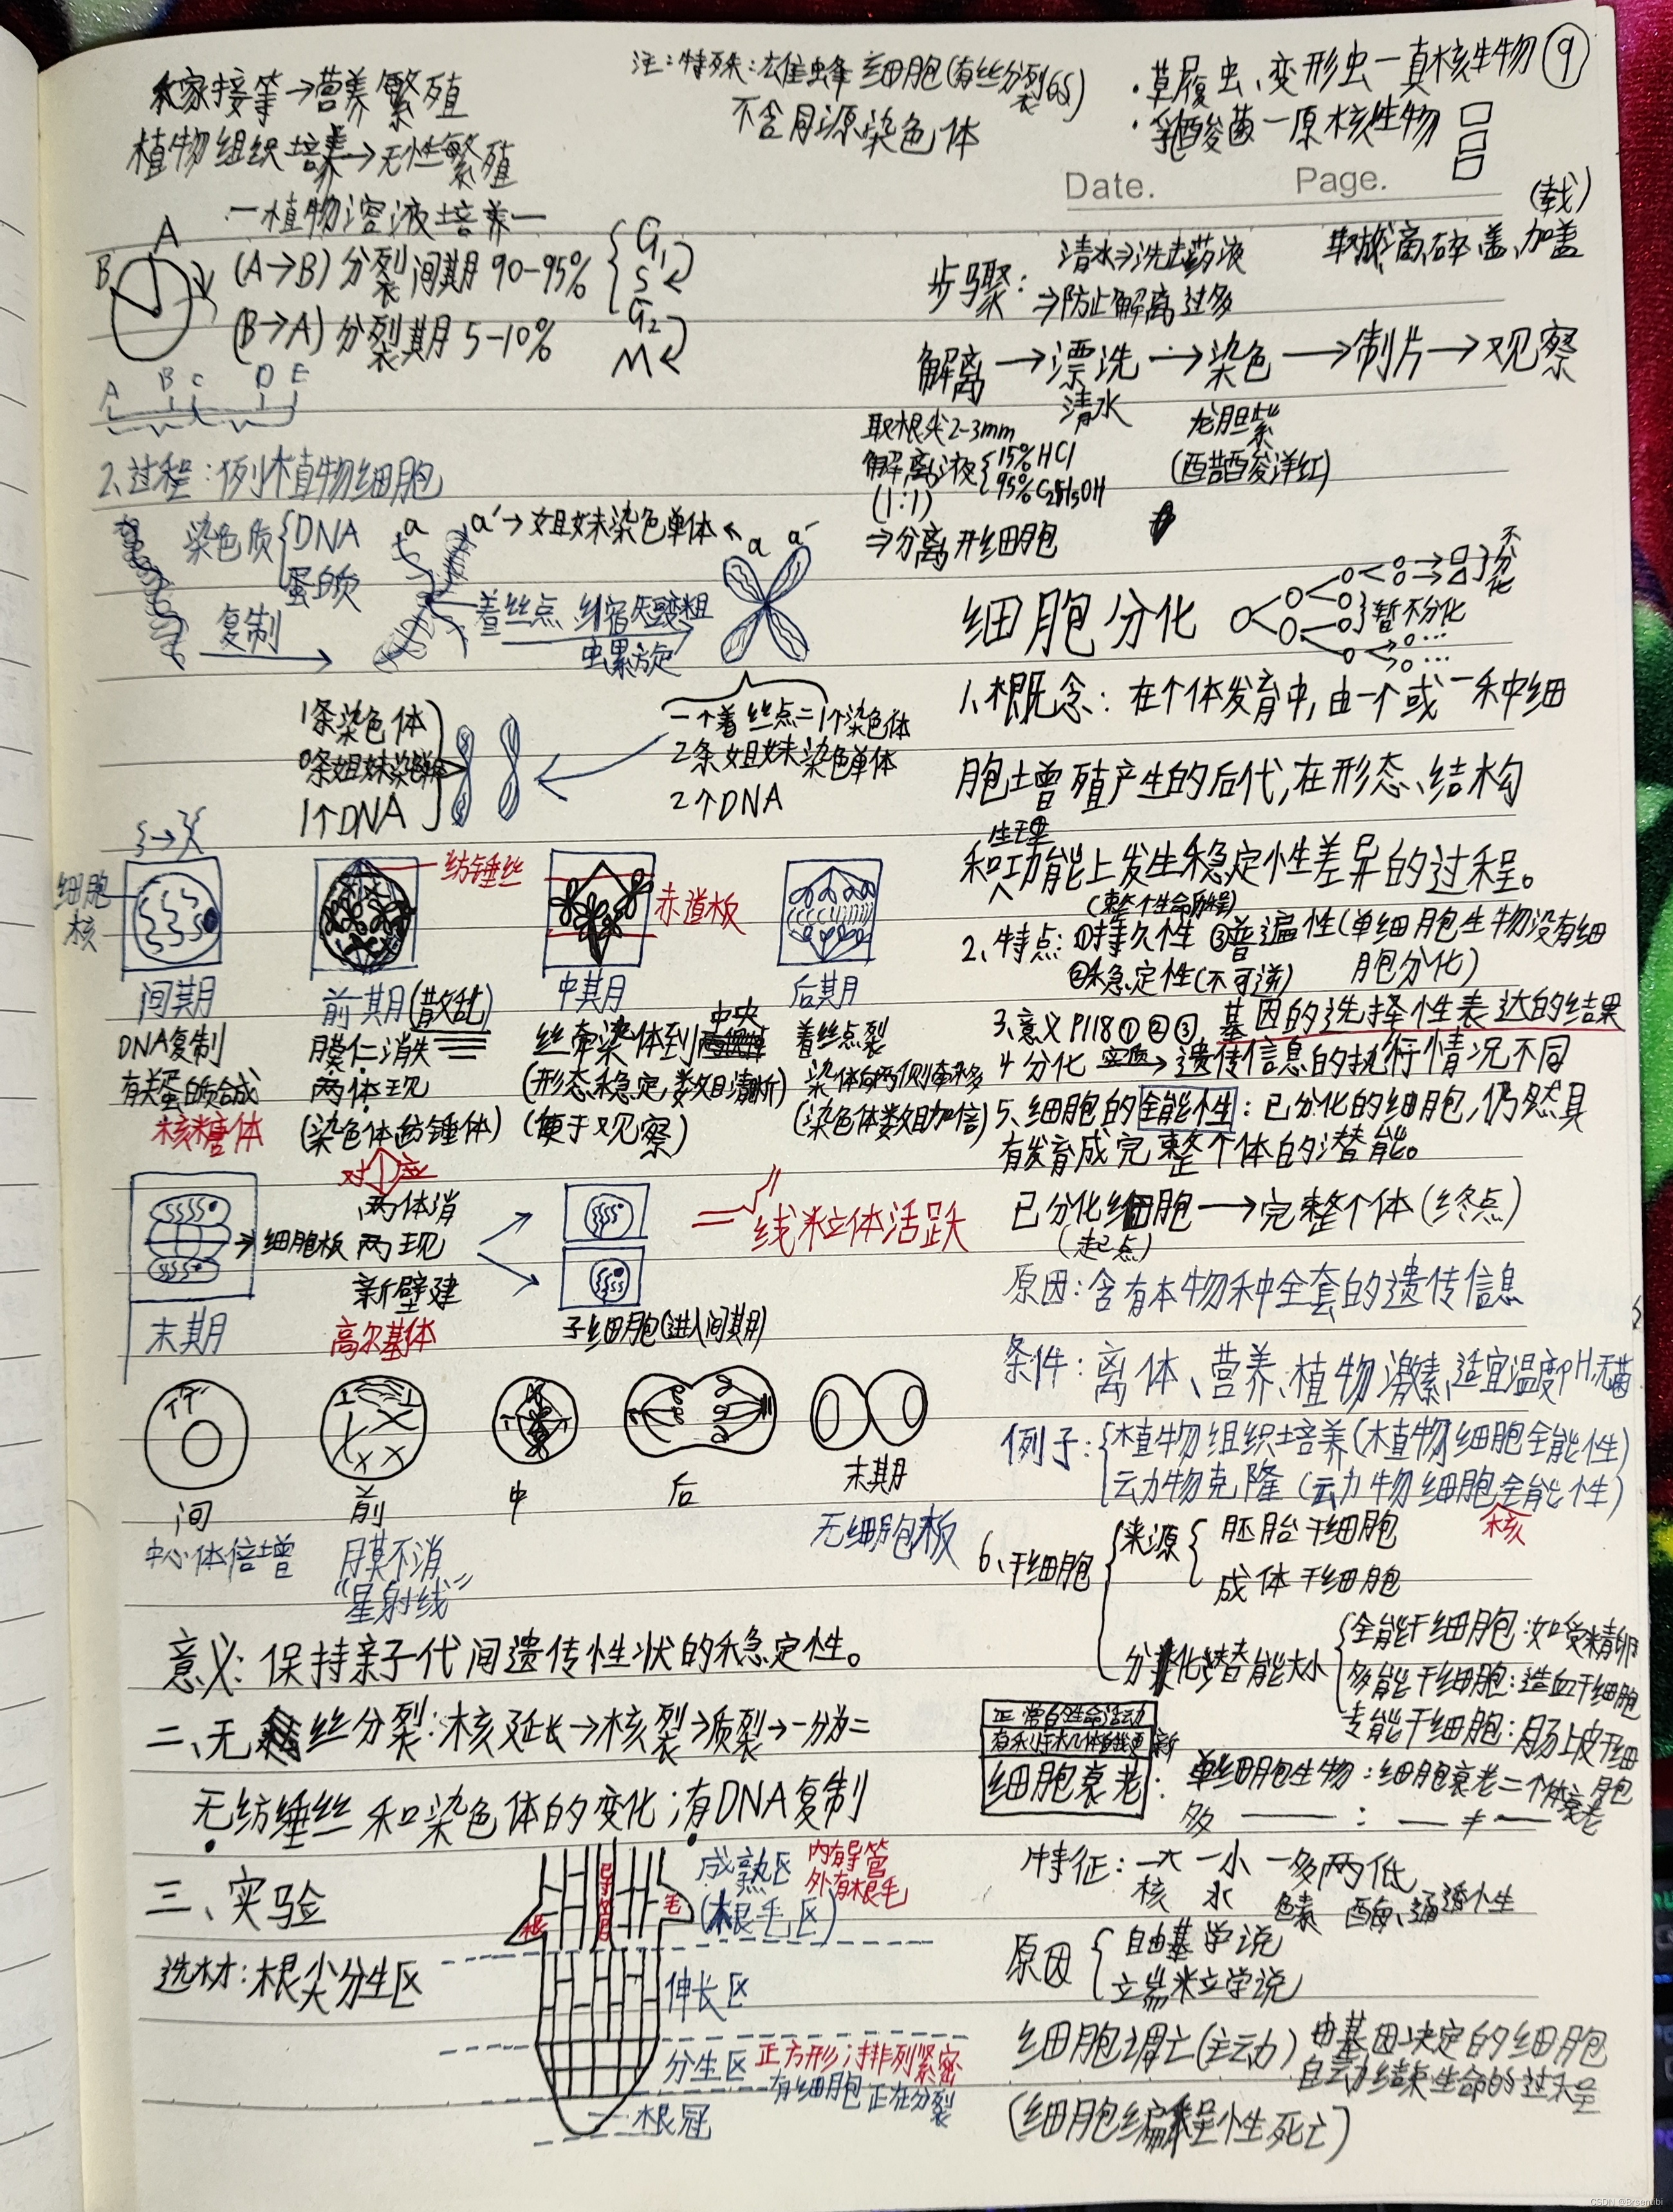 家接等→营养繁殖
植物组织培养→无性繁殖
一植物溶液培养一
注:特殊:雄蜂 细胞(有丝分裂GS)
不含同源染色体
·草履虫、变形虫一真核生物 ⑨
·乳酸菌一原核生物
Date. Page.
A
B
(A→B)分裂间期 90-95%
(B→A)分裂期 5-10%
G₁
S
G₂
M
A B C D E
2、过程:例:植物细胞
染色质 DNA
蛋白质
复制
a a′→姐妹染色单体 a a′
着丝点 缩短变粗
螺旋
1条染色体
0条姐妹染色单体
1个DNA
一个着丝点=1个染色体
2条姐妹染色单体
2个DNA
细胞核
纺锤丝
赤道板
间期 前期(散乱) 中期 后期
DNA复制
有关蛋白质合成
核糖体
膜仁消失
两体现
(染色体纺锤体)
对应
丝牵染体到中央
(形态稳定 数目清晰)
(便于观察)
着丝点裂
染体向两侧牵移
(染色体数目加倍)
→细胞板
两体消
两现
新壁建
末期
高尔基体
子细胞(进入间期)
线粒体活跃
间 前 中 后 末期
中心体倍增
膜不消
“星射线”
无细胞板
意义:保持亲子代间遗传性状的稳定性。
二、无丝分裂:核延长→核裂→质裂→一分为二
无纺锤丝和染色体的变化;有DNA复制
三、实验
选材:根尖分生区
根
毛
成熟区
(根毛区)
内有导管
外有根毛
伸长区
分生区 正方形,排列紧密
有细胞正在分裂
根冠
步骤:
清水⇒洗去药液
⇒防止解离过多
(载)
取滴碎盖、加盖
解离→漂洗→染色→制片→观察
清水
取根尖2-3mm
解离液 15%HCl
95%C₂H₅OH
(1:1)
⇒分离开细胞
龙胆紫
(醋酸洋红)
细胞分化
不分化
暂不分化
1、概念:在个体发育中,由一个或一种细
胞增殖产生的后代,在形态、结构
和生理功能上发生稳定性差异的过程。
(整个生命历程)
2、特点:①持久性 ③普遍性(单细胞生物没有细
胞分化)
②稳定性(不可逆)
3、意义 P118①②③ 基因的选择性表达的结果
4 分化 实质→遗传信息的执行情况不同
5、细胞的全能性:已分化的细胞,仍然具
有发育成完整个体的潜能。
已分化细胞→完整个体(终点)
(起点)
原因:含有本物种全套的遗传信息
条件:离体、营养、植物激素、适宜温度pH、无菌
例子:植物组织培养(植物细胞全能性)
动物克隆(动物细胞全能性)
核
6、干细胞
来源 胚胎干细胞
成体干细胞
分化潜能大小
全能干细胞:如受精卵
多能干细胞:造血干细胞
专能干细胞:肠上皮干细胞
正常的生命活动
有利于机体自我更新
细胞衰老:单细胞生物:细胞衰老=个体衰老
多——:—≠—
特征:一大 一小 一多两低
核 水 色素 酶、通透性
原因 自由基学说
端粒学说
细胞凋亡(主动)由基因决定的细胞
自动结束生命的过程
(细胞编程性死亡)
CSDN @Brsentibi